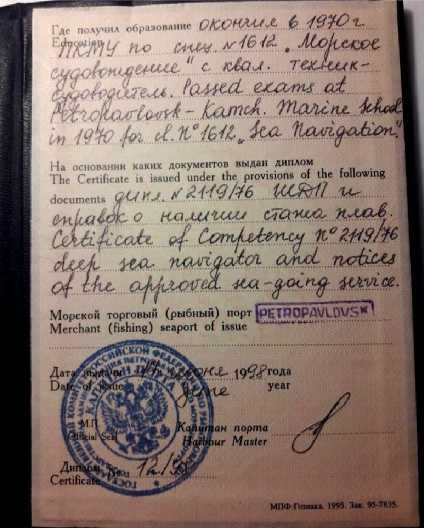 Где получил образование окончил в 1970г.
Education
ПКМУ по спец. №1612 „Морское
судовождение" с квал. техник-
судоводитель. Passed exams at
Petropavlovsk-Kamch. Marine School
in 1970 for cl. N°1612 „Sea Navigation".
На основании каких документов выдан диплом
The Certificate is issued under the provisions of the following
documents дипл. №2119/76 ШДП и
справок о наличии стажа плав.
Certificate of Competency N° 2119/76
deep sea navigator and notices
of the approved sea-going service.
Морской торговый (рыбный) порт PETROPAVLOVSK
Merchant (fishing) seaport of issue
Дата выдачи июня 1998 года
Date of issue June year
М.П.
Official Seal
Капитан порта
Harbour Master
Диплом №
Certificate
МПФ Гознака. 1995. Зак. 95-7835.